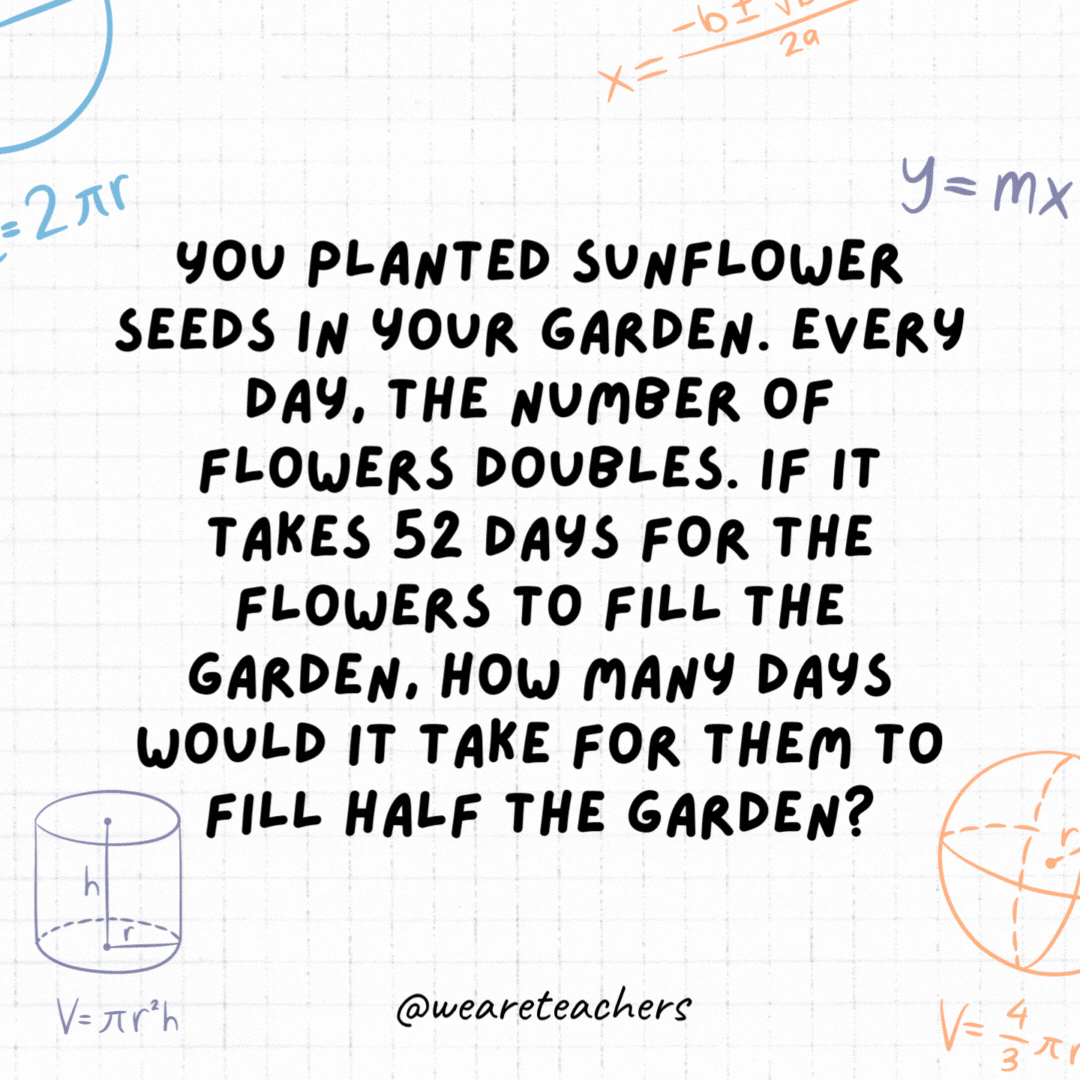 x = -b ± √b
2a
= 2πr
y = mx
YOU PLANTED SUNFLOWER
SEEDS IN YOUR GARDEN. EVERY
DAY, THE NUMBER OF
FLOWERS DOUBLES. IF IT
TAKES 52 DAYS FOR THE
FLOWERS TO FILL THE
GARDEN, HOW MANY DAYS
WOULD IT TAKE FOR THEM TO
FILL HALF THE GARDEN?
h
r
r
V = πr²h
@weareteachers
V = 4/3 πr